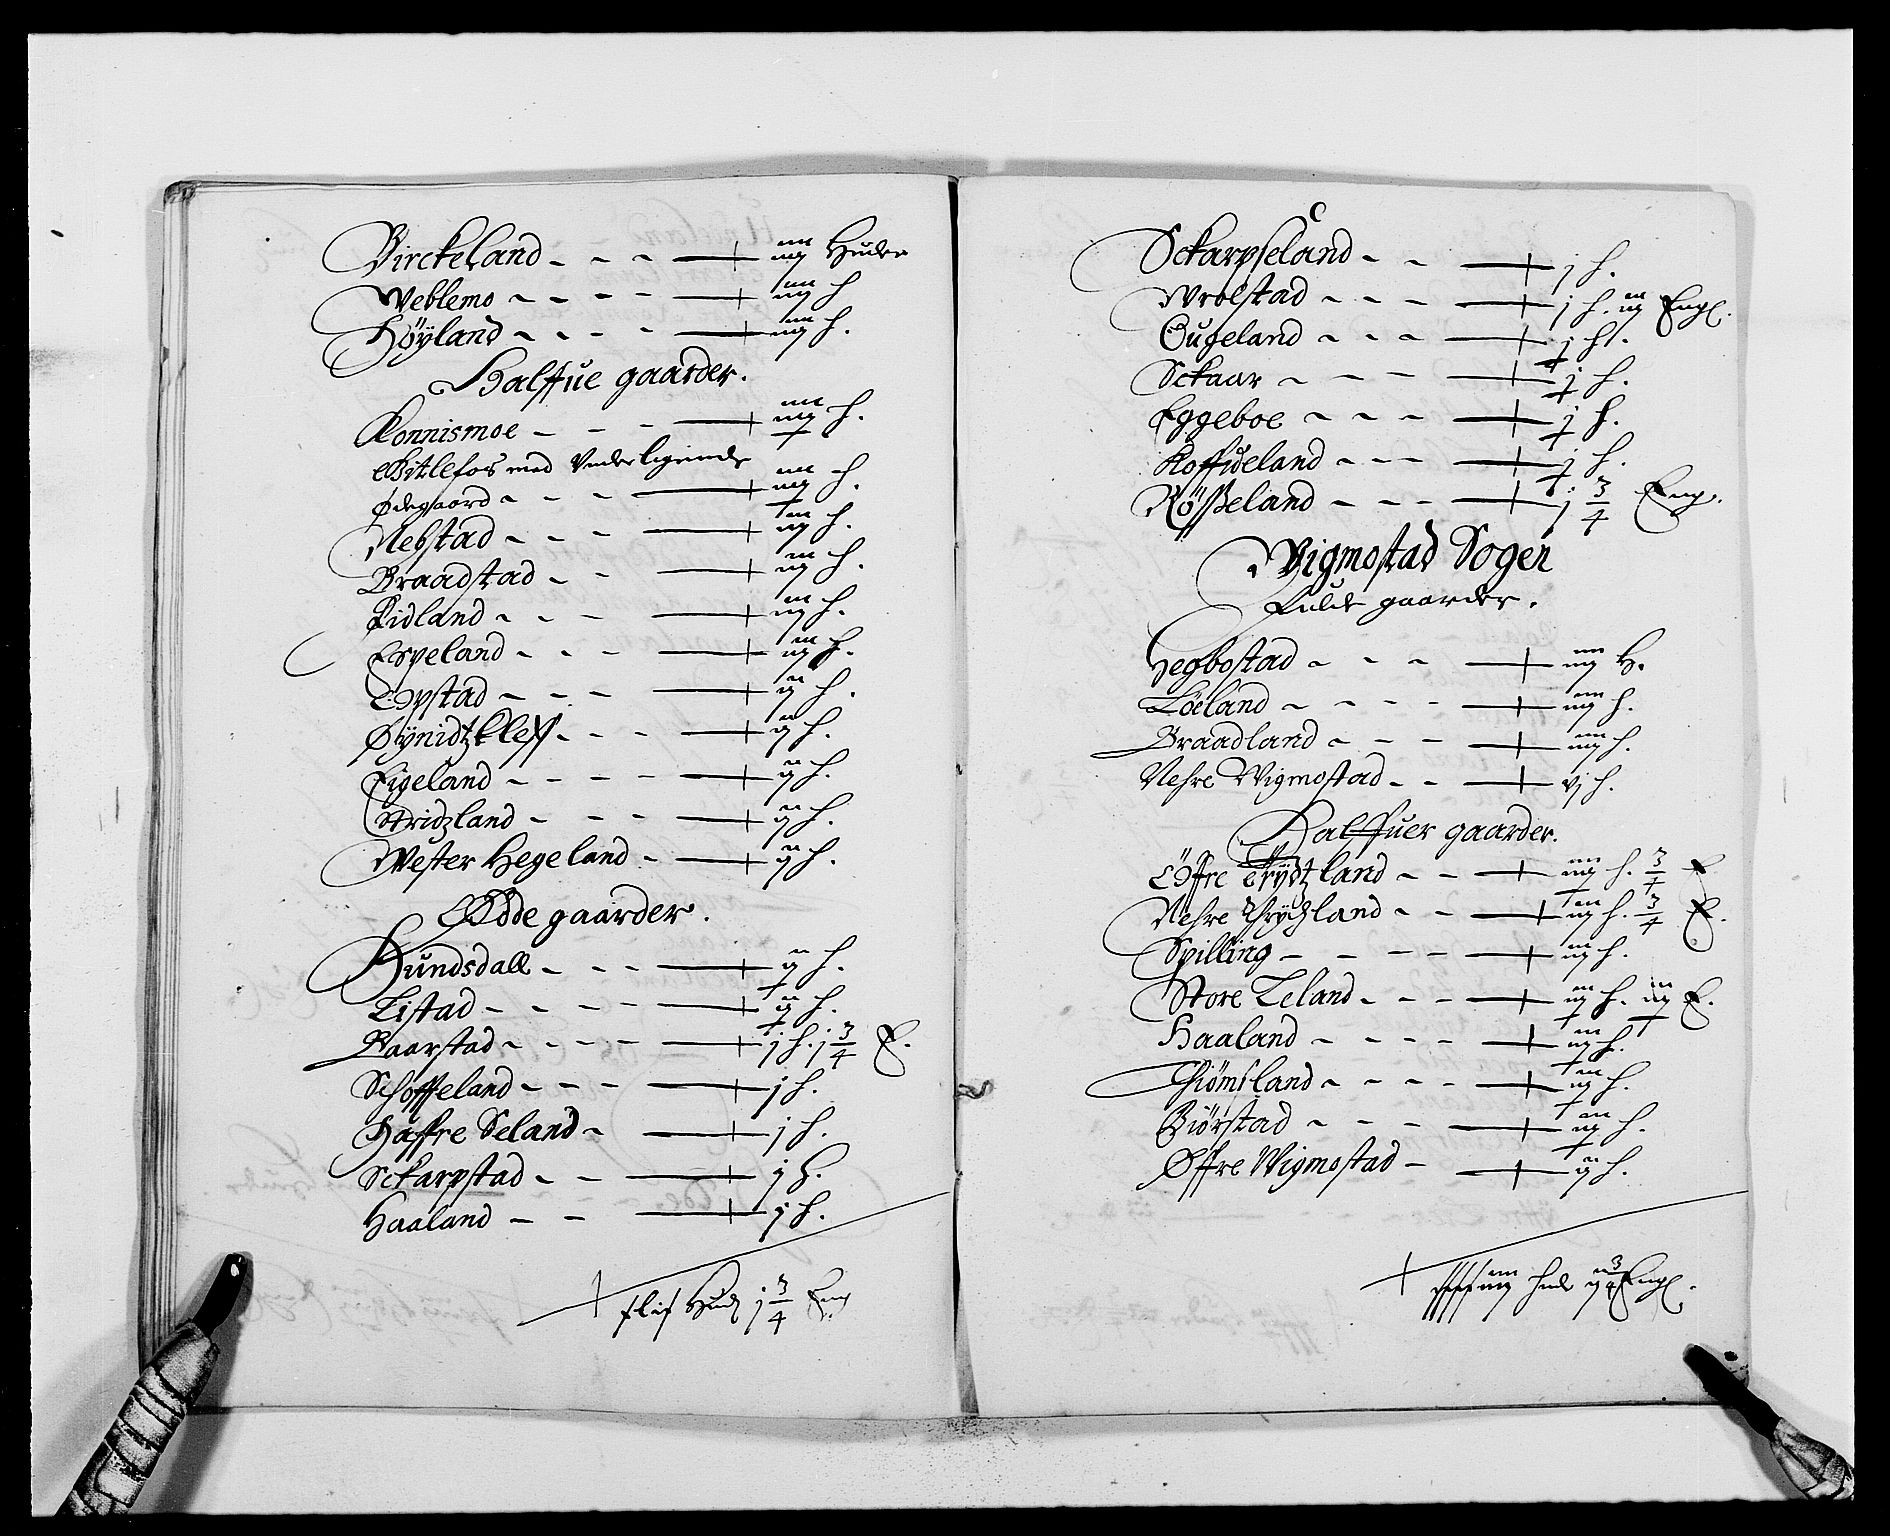 Birckeland - - - iiij Huder
Weblemo - - - - iiij h
Höyland - - - - iiij h.
Halffue gaarder.
Konnismoe - - - iiij h.
Gitlefos med Underliggende
Ødegaard - - - iiij h.
Nebstad - - - iij h.
Braadstad - - iij h.
Kidland - - - iij h.
Espeland - - - iij h.
Opstad - - - ij h.
Øÿnidtzkleff - - - ij h.
Eigeland - - - - ij h.
Stridzland - - - - ij h.
Wester Hegeland - ij h.
Ødde gaarder.
Hundsdall - - - - ij h.
Listad - - - - - ij h.
Baarstad - - - - - j h. j 3/4 E.
Schoffteland - - - - j h.
Haffre Seland - j h.
Sckarpstad - - j h.
Haaland - - j h.
Hud j 3/4 Eng
Sckarpseland - - j h.
Wrolstad - - - j h. iij Engl.
Ougeland - - - j h.
Sckaar - - - - j h.
Eggeboe - - - j h.
Koffueland - - - j h.
Rößeland - - - - j 3/4 Eng.
Vigmostad Sogen
Fulde gaarder.
Hegbostad - - - iiij H.
Löeland - - - - iiij h.
Braadland - - - iiij h.
Nehre Wigmostad - - vj h.
Halffuer gaarder.
Öffre Trÿdtzland - - iiij h. 3/4 E
Nehre Thrÿdzland - - iij h. 3/4 E.
Spilling - - - - iij h.
Store Leland - - - iij h. iij E.
Haaland - - - - iij h.
Thiömsland - - - - iij h.
Biörstad - - - - iij h.
Øffre Wigmostad - ij h.
hud 3/4 Engl.